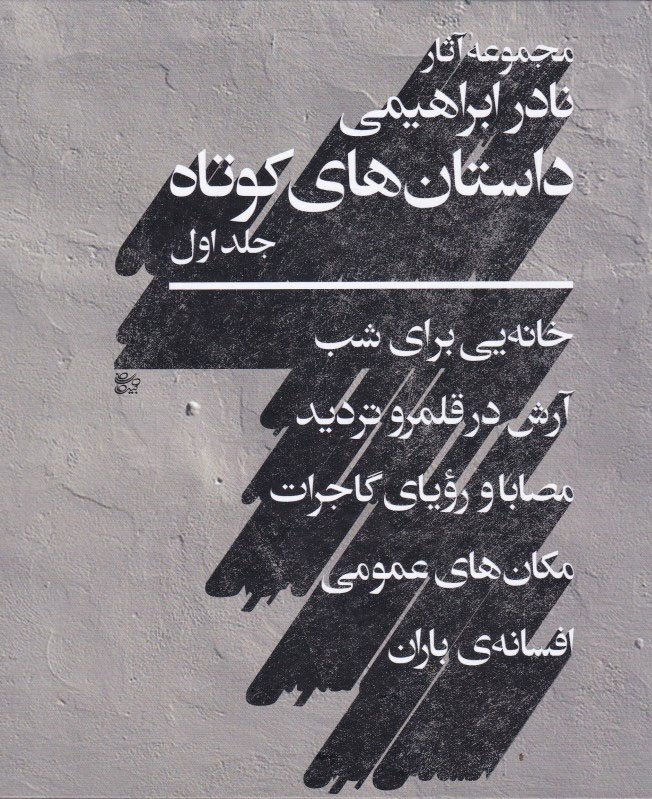 مجموعه آثار
نادر ابراهیمی
داستان‌های کوتاه
جلد اول
خانه‌یی برای شب
آرش در قلمرو تردید
مصابا و رؤیای گاجرات
مکان‌های عمومی
افسانه‌ی باران